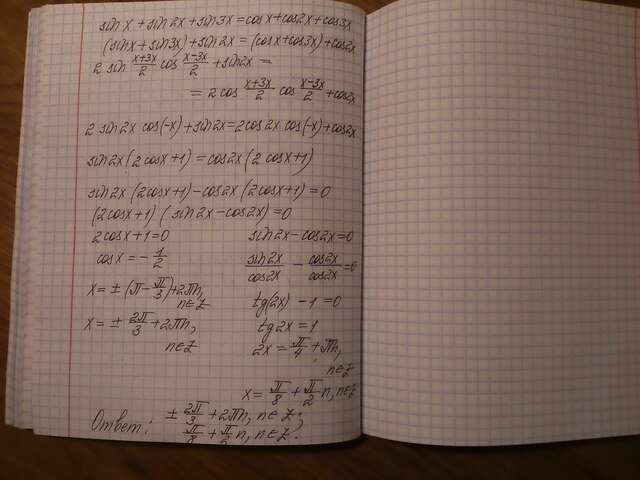 sin x + sin 2x + sin 3x = cos x + cos 2x + cos 3x
(sin x + sin 3x) + sin 2x = (cos x + cos 3x) + cos 2x
2 sin (x+3x)/2 cos (x-3x)/2 + sin 2x =
= 2 cos (x+3x)/2 cos (x-3x)/2 + cos 2x
2 sin 2x cos(-x) + sin 2x = 2 cos 2x cos(-x) + cos 2x
sin 2x (2 cos x + 1) = cos 2x (2 cos x + 1)
sin 2x (2 cos x + 1) - cos 2x (2 cos x + 1) = 0
(2 cos x + 1) (sin 2x - cos 2x) = 0
2 cos x + 1 = 0
cos x = - 1/2
x = ± (π - π/3) + 2πn,
n ∈ Z
x = ± 2π/3 + 2πn,
n ∈ Z
sin 2x - cos 2x = 0
sin 2x/cos 2x - cos 2x/cos 2x = 0
tg(2x) - 1 = 0
tg 2x = 1
2x = π/4 + πn,
n ∈ Z
x = π/8 + π/2 n, n ∈ Z
Ответ: ± 2π/3 + 2πn, n ∈ Z;
π/8 + π/2 n, n ∈ Z.